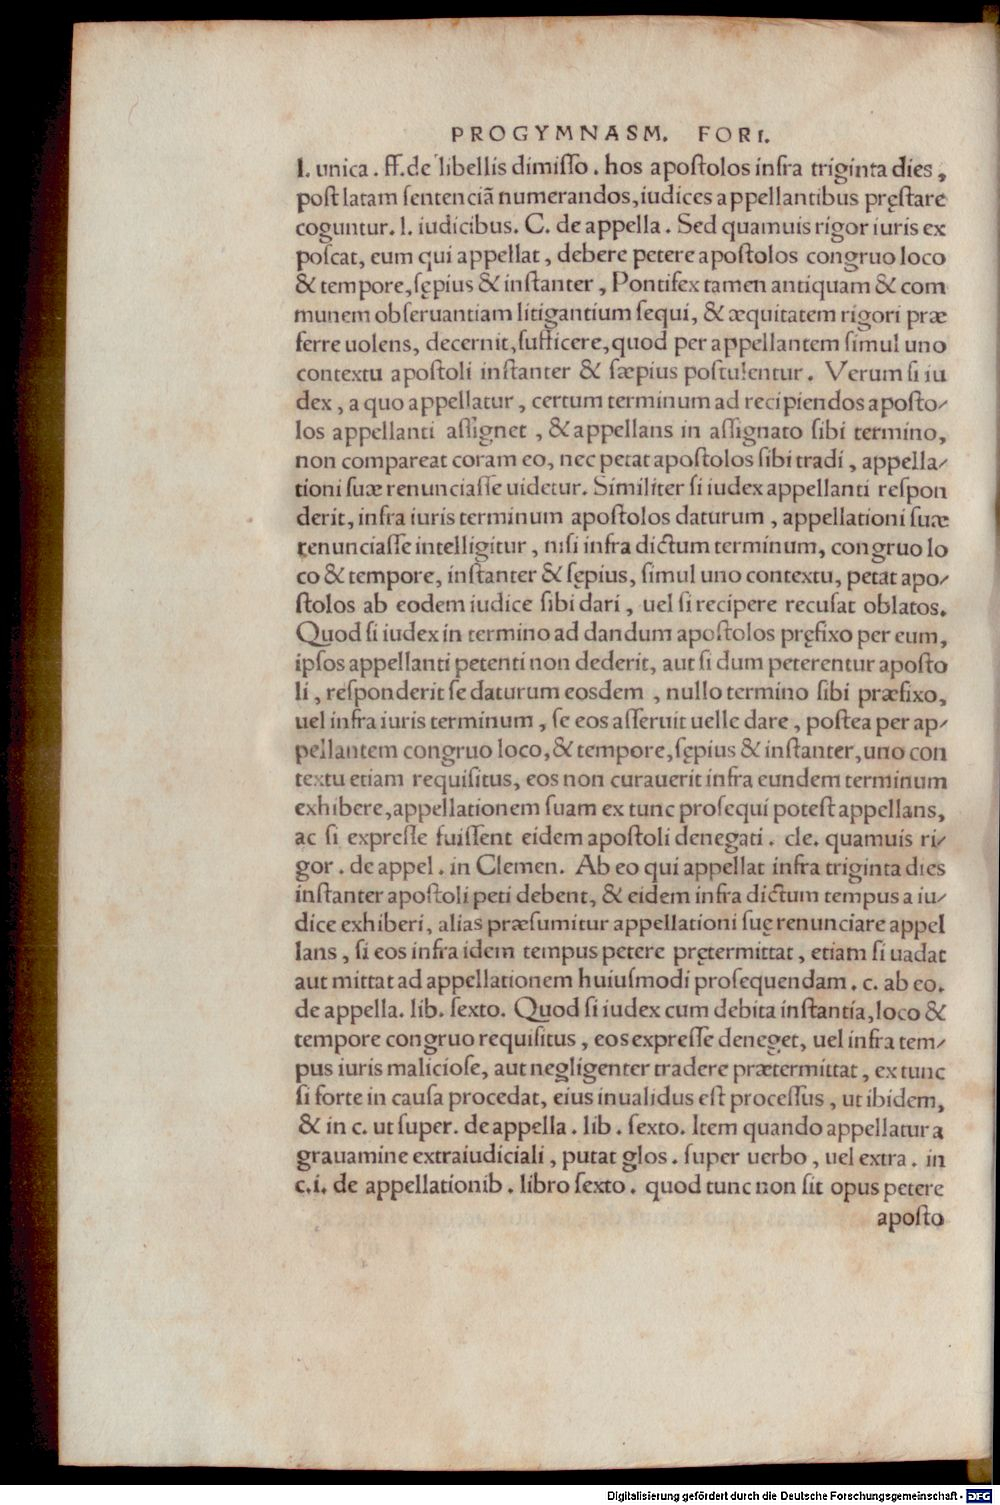 PROGYMNASM. FORI.
l. unica. ff. de libellis dimisso. hos apostolos infra triginta dies,
post latam sententiã numerandos, iudices appellantibus pręstare
coguntur. l. iudicibus. C. de appella. Sed quamuis rigor iuris ex
poscat, eum qui appellat, debere petere apostolos congruo loco
& tempore, sępius & instanter, Pontifex tamen antiquam & com
munem obseruantiam litigantium sequi, & æquitatem rigori præ
ferre uolens, decernit, sufficere, quod per appellantem simul uno
contextu apostoli instanter & sæpius postulentur. Verum si iu
dex, a quo appellatur, certum terminum ad recipiendos aposto-
los appellanti assignet, & appellans in assignato sibi termino,
non compareat coram eo, nec petat apostolos sibi tradi, appella-
tioni suæ renunciasse uidetur. Similiter si iudex appellanti respon
derit, infra iuris terminum apostolos daturum, appellationi suæ
renunciasse intelligitur, nisi infra dictum terminum, congruo lo
co & tempore, instanter & sępius, simul uno contextu, petat apo-
stolos ab eodem iudice sibi dari, uel si recipere recusat oblatos.
Quod si iudex in termino ad dandum apostolos pręfixo per eum,
ipsos appellanti petenti non dederit, aut si dum peterentur aposto
li, responderit se daturum eosdem, nullo termino sibi præfixo,
uel infra iuris terminum, se eos asseruit uelle dare, postea per ap-
pellantem congruo loco, & tempore, sępius & instanter, uno con
textu etiam requisitus, eos non curauerit infra eundem terminum
exhibere, appellationem suam ex tunc prosequi potest appellans,
ac si expresse fuissent eidem apostoli denegati. cle. quamuis ri-
gor. de appel. in Clemen. Ab eo qui appellat infra triginta dies
instanter apostoli peti debent, & eidem infra dictum tempus a iu-
dice exhiberi, alias præsumitur appellationi suę renunciare appel
lans, si eos infra idem tempus petere prętermittat, etiam si uadat
aut mittat ad appellationem huiusmodi prosequendam. c. ab eo.
de appella. lib. sexto. Quod si iudex cum debita instantia, loco &
tempore congruo requisitus, eos expresse deneget, uel infra tem-
pus iuris maliciose, aut negligenter tradere prætermittat, ex tunc
si forte in causa procedat, eius inualidus est processus, ut ibidem,
& in c. ut super. de appella. lib. sexto. Item quando appellatur a
grauamine extraiudiciali, putat glos. super uerbo, uel extra. in
c.i. de appellationib. libro sexto. quod tunc non sit opus petere
aposto
Digitalisierung gefördert durch die Deutsche Forschungsgemeinschaft - DFG